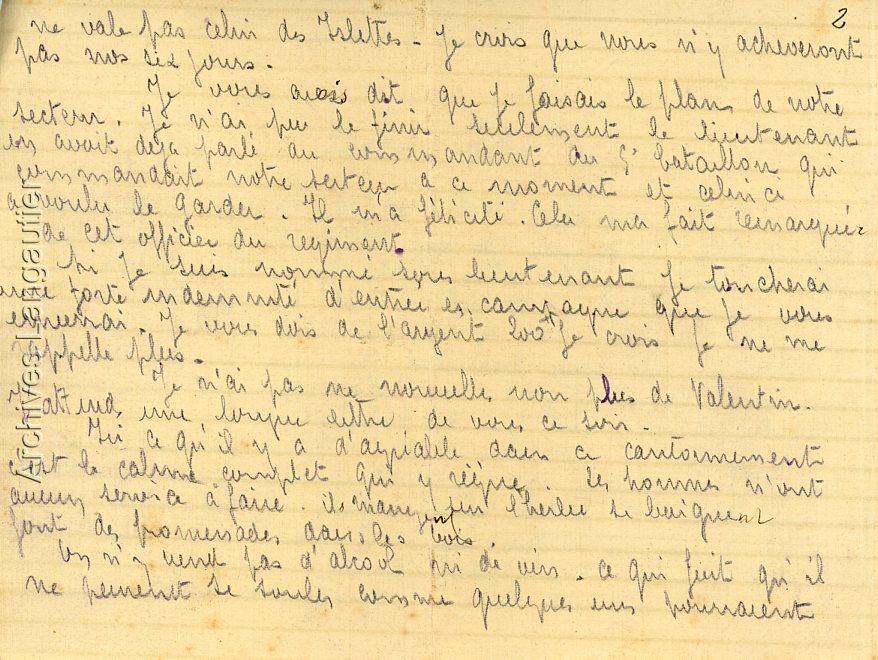 2
ne vale pas celui des Islettes - Je crois que nous n'y acheveront
pas nos six jours.
Je vous avais dit que je faisais le plan de notre
secteur. Je n'ai pu le finir seulement le lieutenant
en avait deja parlé au commandant du 5e bataillon qui
commandait notre secteur a ce moment et celui ci
a voulu le garder. Il m'a félicité. Cela ma fait remarquer
de cet officier du regiment.
Si Je suis nommé sous lieutenant Je toucherai
une forte indemnité d'entrée en campagne que Je vous
enverrai. Je vous dois de l'argent 200f Je crois Je ne me
rappelle plus.
Je n'ai pas ne nouvelles non plus de Valentin.
J'attends une longue lettre de vous ce soir.
Ici ce qu'il y a d'agréable dans ce cantonnement
c'est le calme complet qui y règne. Les hommes n'ont
aucun service à faire. ils mangent sur l'herbe se baignent
font des promenades dans les bois.
On n'y vend pas d'alcool ni de vin. ce qui fait qu'il
ne peuvent se souler comme quelques uns pourraient
Archives Langautier